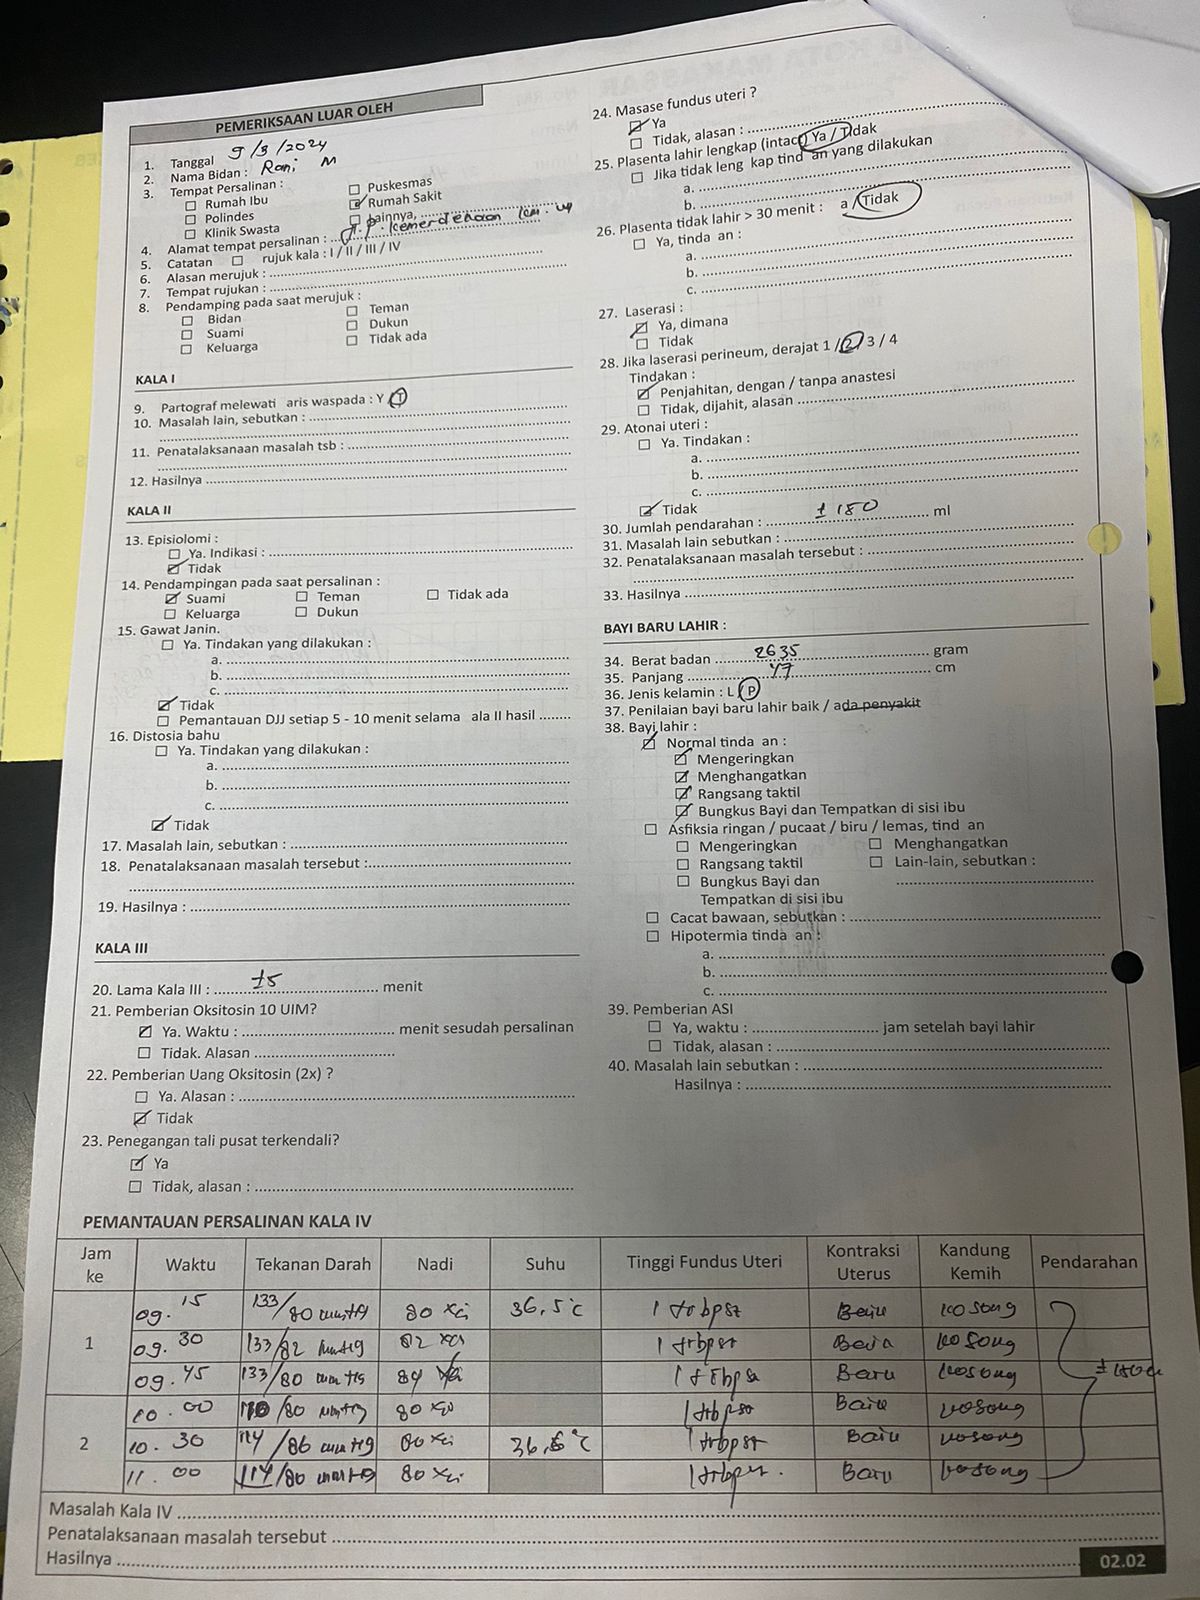 PEMERIKSAAN LUAR OLEH
1. Tanggal 9/3/2024
2. Nama Bidan : Rani M
3. Tempat Persalinan :
Rumah Ibu
Puskesmas
Polindes
Rumah Sakit
Klinik Swasta
Lainnya,
4. Alamat tempat persalinan : Jl. P. Kemerdekaan
5. Catatan rujuk kala : I / II / III / IV
6. Alasan merujuk :
7. Tempat rujukan :
8. Pendamping pada saat merujuk :
Bidan
Teman
Suami
Dukun
Keluarga
Tidak ada
KALA I
9. Partograf melewati aris waspada : Y T
10. Masalah lain, sebutkan :
11. Penatalaksanaan masalah tsb :
12. Hasilnya
KALA II
13. Episiolomi :
Ya. Indikasi :
Tidak
14. Pendampingan pada saat persalinan :
Suami Teman Tidak ada
Keluarga Dukun
15. Gawat Janin.
Ya. Tindakan yang dilakukan :
a.
b.
c.
Tidak
Pemantauan DJJ setiap 5 - 10 menit selama ala II hasil
16. Distosia bahu
Ya. Tindakan yang dilakukan :
a.
b.
c.
Tidak
17. Masalah lain, sebutkan :
18. Penatalaksanaan masalah tersebut :
19. Hasilnya :
KALA III
20. Lama Kala III : ±5 menit
21. Pemberian Oksitosin 10 UIM?
Ya. Waktu : menit sesudah persalinan
Tidak. Alasan
22. Pemberian Uang Oksitosin (2x) ?
Ya. Alasan :
Tidak
23. Penegangan tali pusat terkendali?
Ya
Tidak, alasan :
24. Masase fundus uteri ?
Ya
Tidak, alasan :
25. Plasenta lahir lengkap (intact) Ya / Tidak
Jika tidak leng kap tind an yang dilakukan
a.
b.
26. Plasenta tidak lahir > 30 menit : a / Tidak
Ya, tinda an :
a.
b.
c.
27. Laserasi :
Ya, dimana
Tidak
28. Jika laserasi perineum, derajat 1 / 2 / 3 / 4
Tindakan :
Penjahitan, dengan / tanpa anastesi
Tidak, dijahit, alasan
29. Atonai uteri :
Ya. Tindakan :
a.
b.
c.
Tidak
30. Jumlah pendarahan : ± 180 ml
31. Masalah lain sebutkan :
32. Penatalaksanaan masalah tersebut :
33. Hasilnya
BAYI BARU LAHIR :
34. Berat badan 2635 gram
35. Panjang 47 cm
36. Jenis kelamin : L / P
37. Penilaian bayi baru lahir baik / ada penyakit
38. Bayi lahir :
Normal tinda an :
Mengeringkan
Menghangatkan
Rangsang taktil
Bungkus Bayi dan Tempatkan di sisi ibu
Asfiksia ringan / pucaat / biru / lemas, tind an
Mengeringkan Menghangatkan
Rangsang taktil Lain-lain, sebutkan :
Bungkus Bayi dan
Tempatkan di sisi ibu
Cacat bawaan, sebutkan :
Hipotermia tinda an :
a.
b.
c.
39. Pemberian ASI
Ya, waktu : jam setelah bayi lahir
Tidak, alasan :
40. Masalah lain sebutkan :
Hasilnya :
PEMANTAUAN PERSALINAN KALA IV
Jam ke Waktu Tekanan Darah Nadi Suhu Tinggi Fundus Uteri Kontraksi Uterus Kandung Kemih Pendarahan
1 09.15 133/80 mmHg 80 x/i 36,5°C 1 jrbpst Baik kosong
09.30 133/82 mmHg 82 x/i 1 jrbpst Baik kosong
09.45 133/80 mmHg 84 x/i 1 jrbpst Baik kosong
10.00 /80 mmHg 80 x/i 1 jrbpst Baik kosong
2 10.30 114/86 mmHg 80 x/i 1 jrbpst Baik kosong
11.00 114/80 mmHg 80 x/i 1 jrbpst Baik kosong
Masalah Kala IV
Penatalaksanaan masalah tersebut
Hasilnya
02.02